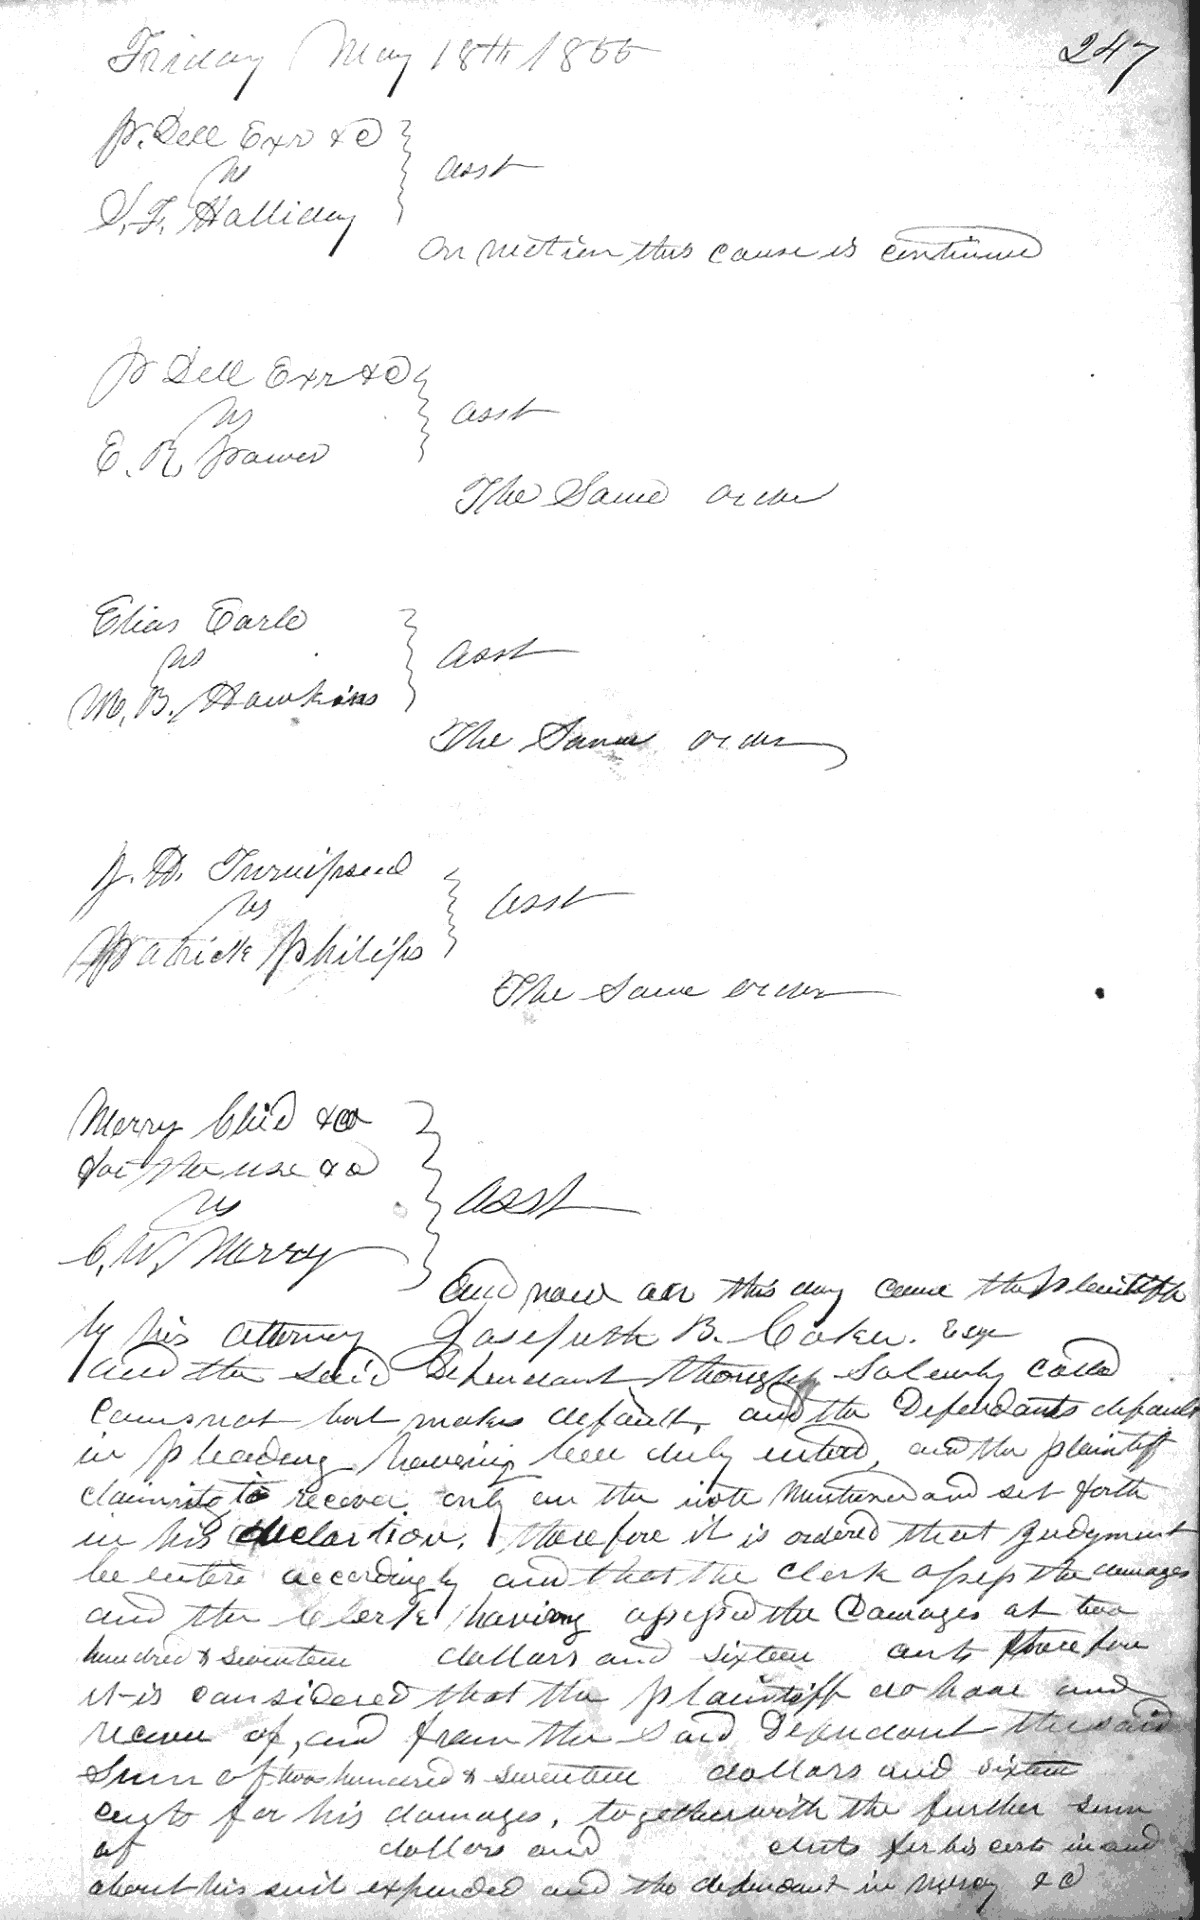 Friday May 18th 1855
247
P. Dell Exr &C
vs
S. F. Halliday
asst
On motion this cause is continued
P Dell Exr &C
vs
E. R.
asst
The Same order
Elias Earle
vs
M. B. Hawkins
asst
The Same order
J. D. Turnipseed
vs
Patrick Philips
asst
The Same order
Merry Chid &Co
for the use &c
vs
C. W. Merry
asst
And now on this day came the plaintiff
by his attorney B. Coker. Esqr
and the said Defendant though Solemnly called
comes not but makes default, and the Defendants default
in pleading having been duly entered, and the plaintiff
claiming to recover only on the note mentioned and set forth
in his declartion. therefore it is ordered that Judgment
be entere accordingly and that the clerk assess the damages
and the Clerk having assessed the Damages at two
hundred & seventeen dollars and sixteen cents therefore
it is considered that the plaintiff do have and
recover of, and from the Said Defendant the said
Sum of two hundred & seventeen dollars and sixteen
cents for his damages, together with the further sum
of dollars and cents for his costs in and
about his suit expended and the defendant in mercy &C